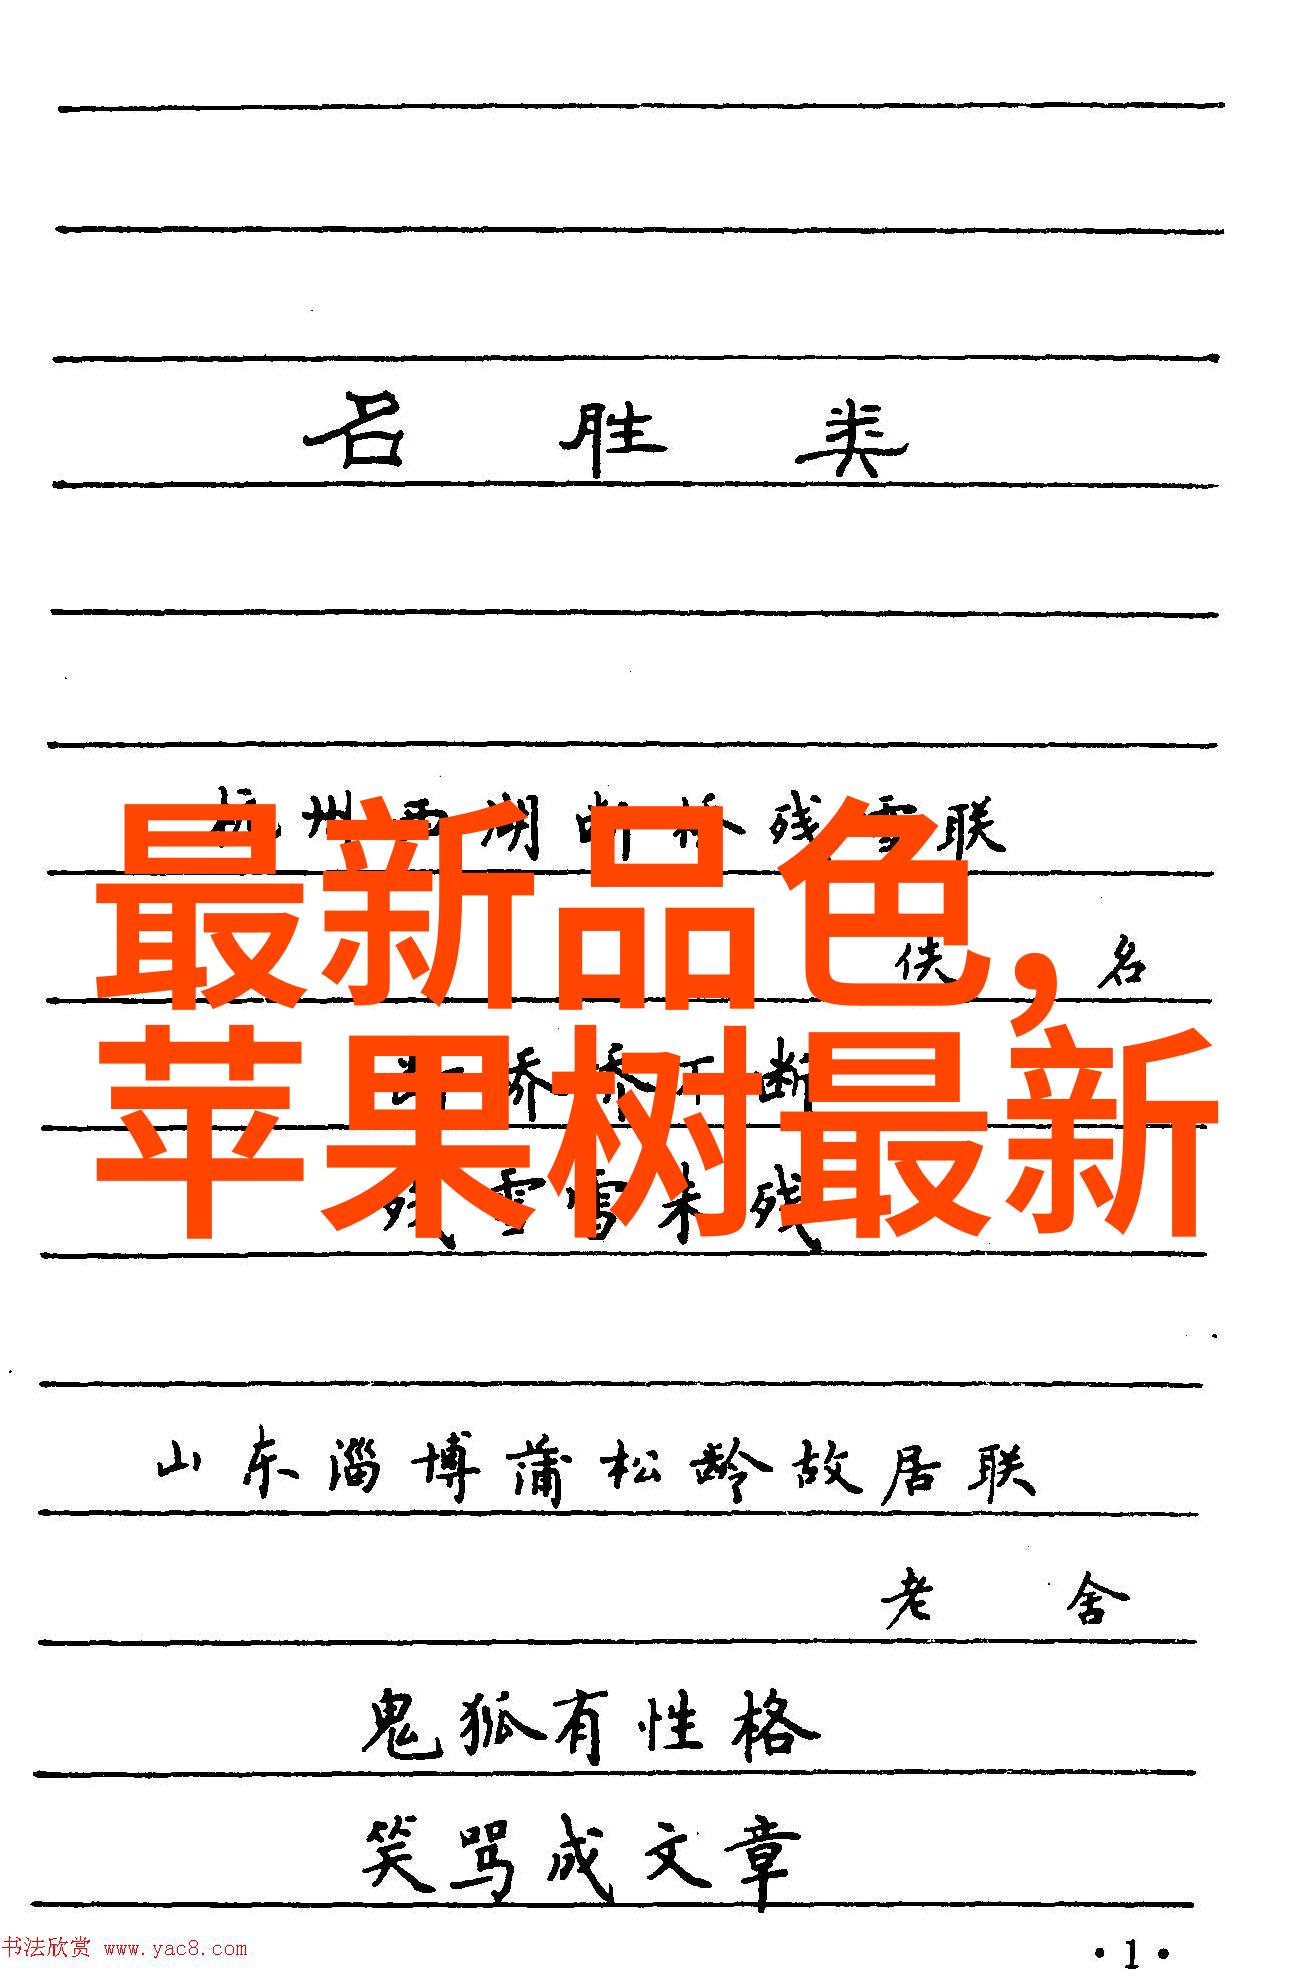 名胜类
杭州西湖断桥残雪联
最新品色,
佚名
断桥桥不断
苹果树最新
残雪雪未残
山东淄博蒲松龄故居联
老舍
鬼狐有性格
笑骂成文章
书法欣赏 www.yac8.com
·1·